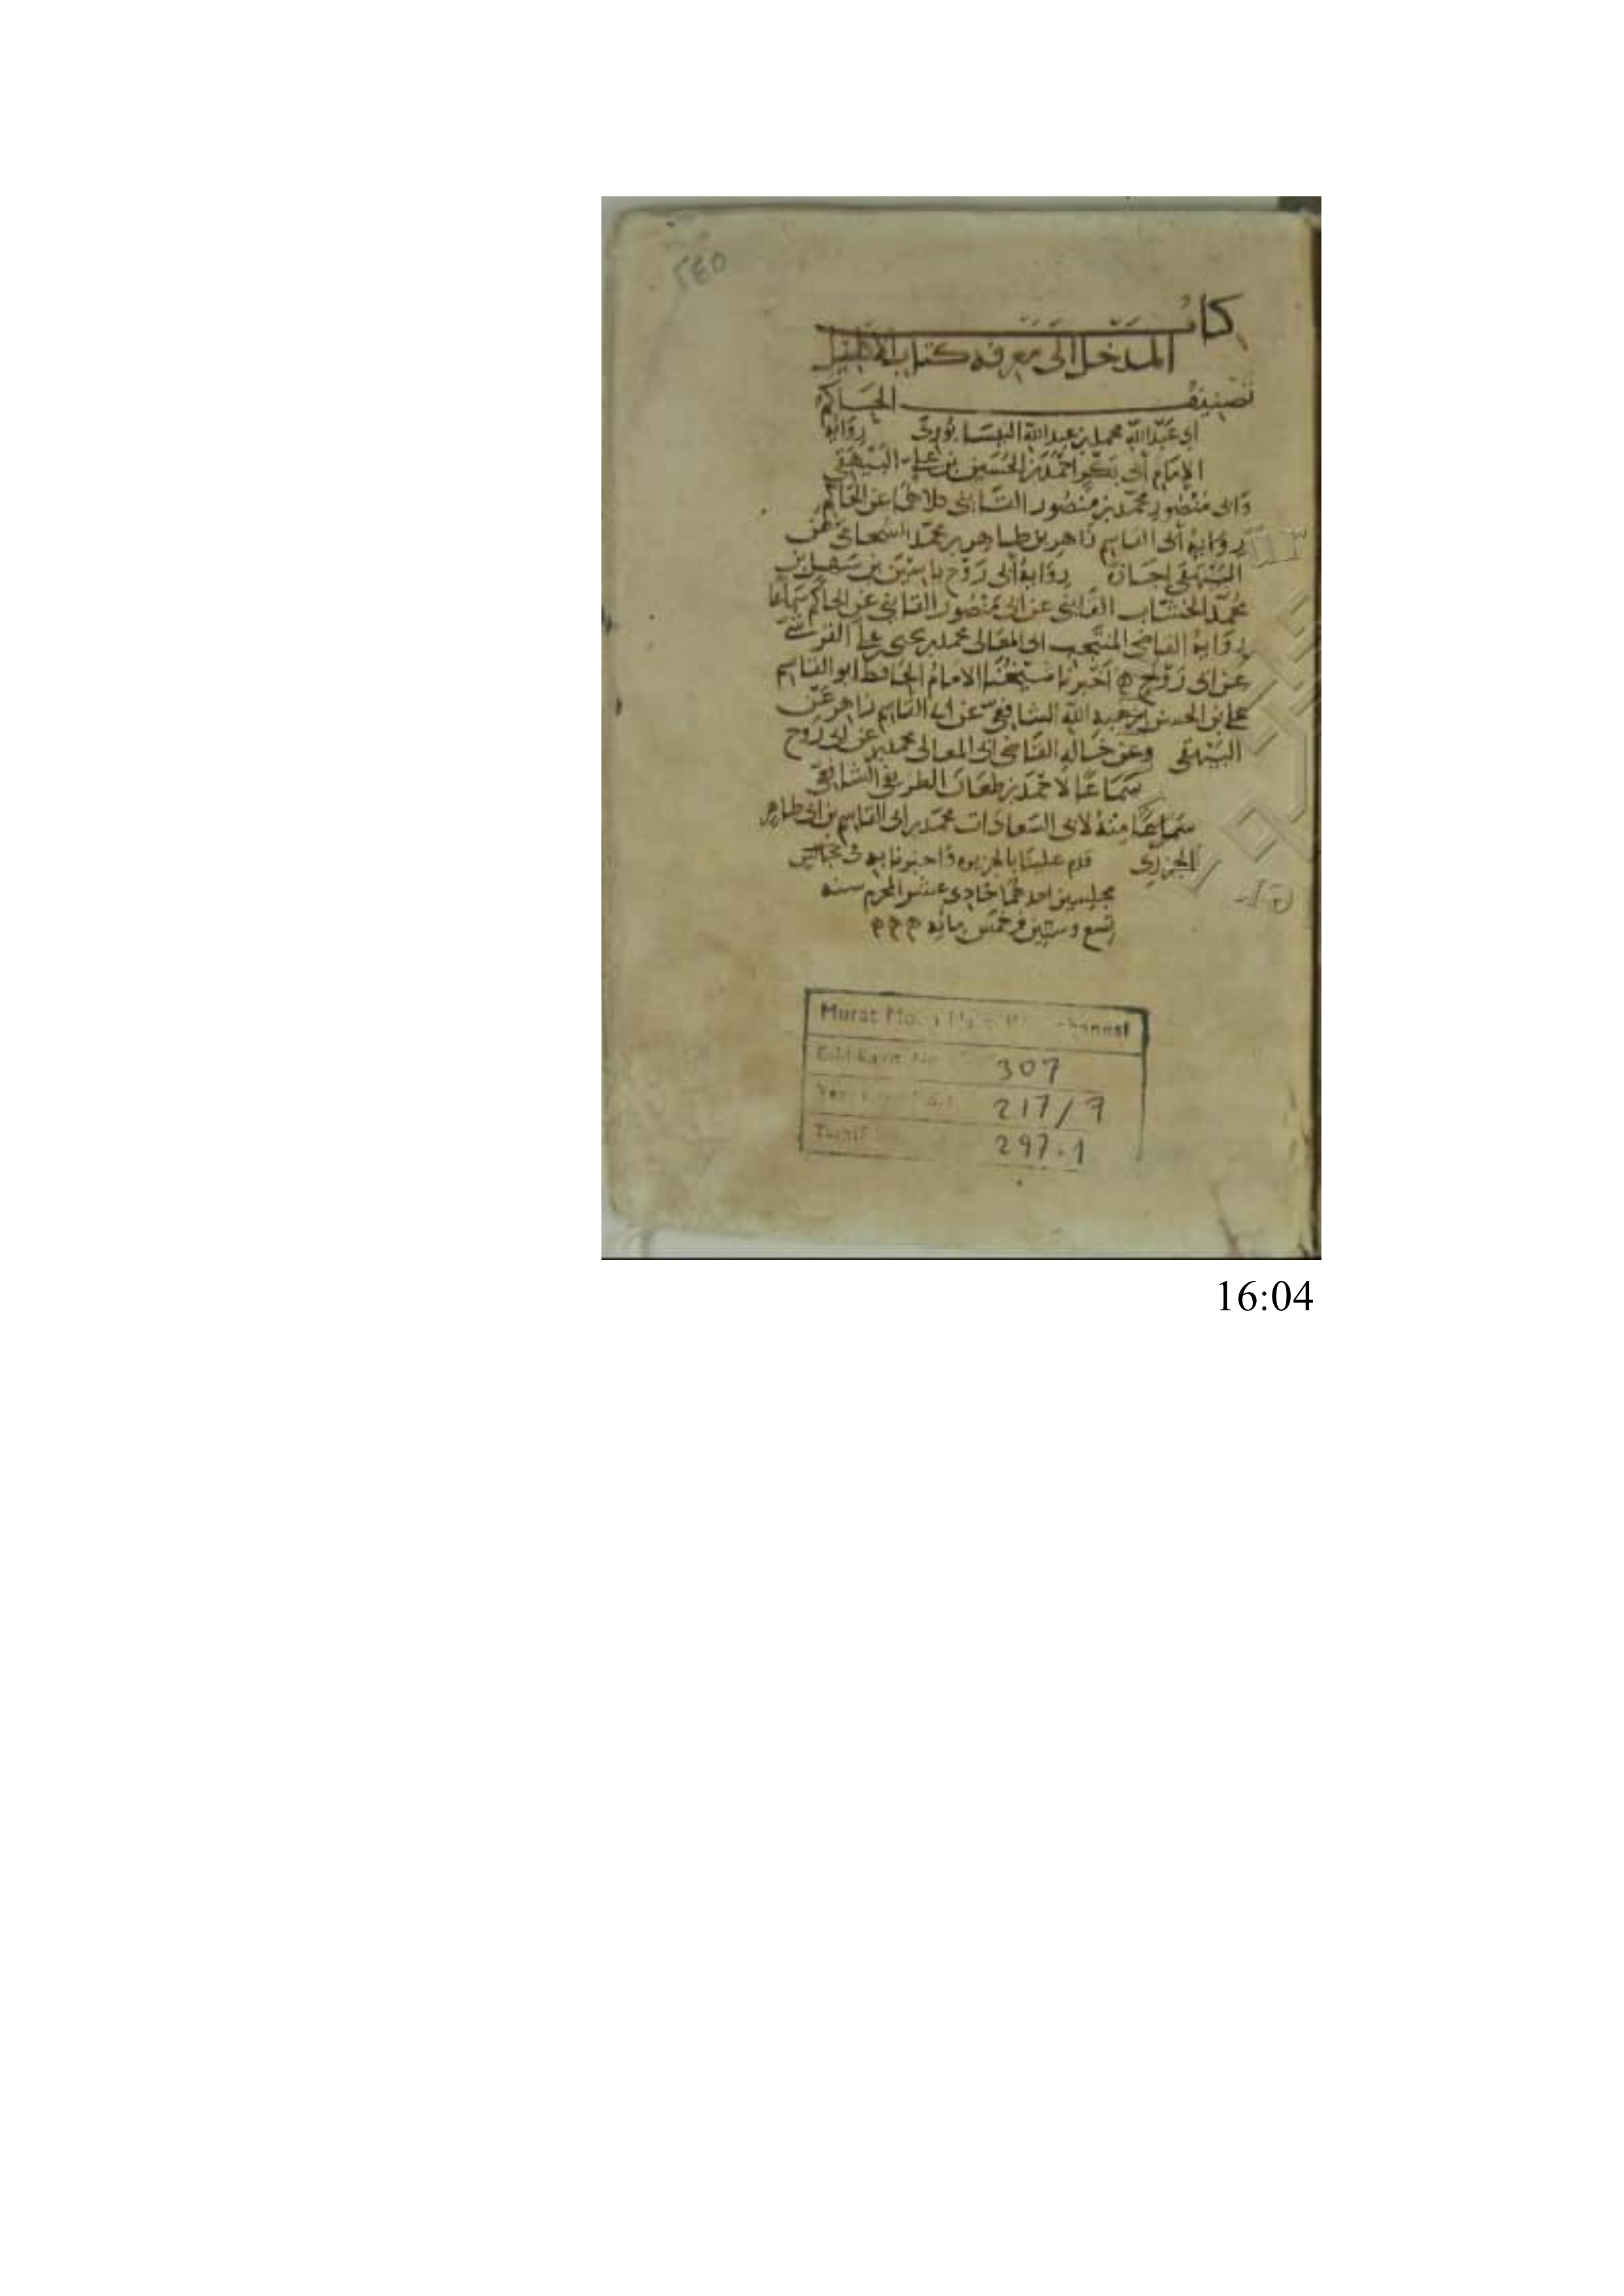 كتاب
المدخل الى معرفة كتاب الاكليل
تصنيف الحاكم
ابي عبد الله محمد بن عبد الله النيسابوري رواية
الإمام أبي بكر احمد بن الحسين بن علي البيهقي
وابي منصور محمد بن منصور القايني كلاهما عن الحاكم
رواية أبي القاسم زاهر بن طاهر بن محمد الشحامي عن
البيهقي إجازة رواية أبي روح ياسين بن سهل بن
محمد الخشاب القايني عن ابي منصور القايني عن الحاكم سماعا
رواية القاضي المنتجب ابي المعالي محمد بن يحيى بن علي القرشي
عن ابي روح أخبرنا شيخنا الامام الحافظ ابو القاسم
علي بن الحسن بن هبة الله الشافعي عن ابي القاسم زاهر عن
البيهقي وعن خاله القاضي أبي المعالي محمد عن أبي روح
سماعا لاحمد بن طعان الطريفي الشافعي
سماعا منه لابي السعادات محمد بن ابي القاسم بن ابي طاهر
الجزري قدم علينا بالجزيرة واخبرنا به في
مجلسين احدهما حادي عشر المحرم سنه
تسع وستين وخمس مائه
Murat
307
217/7
Tasnif 297.1
16:04